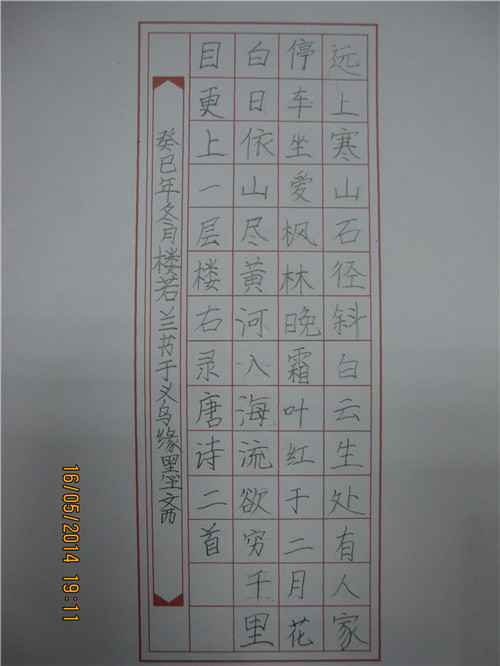 远上寒山石径斜白云生处有人家
停车坐爱枫林晚霜叶红于二月花
白日依山尽黄河入海流欲穷千里
目更上一层楼右录唐诗二首
癸巳年冬月楼若兰书于义乌缘墨
16/05/2014 19:11